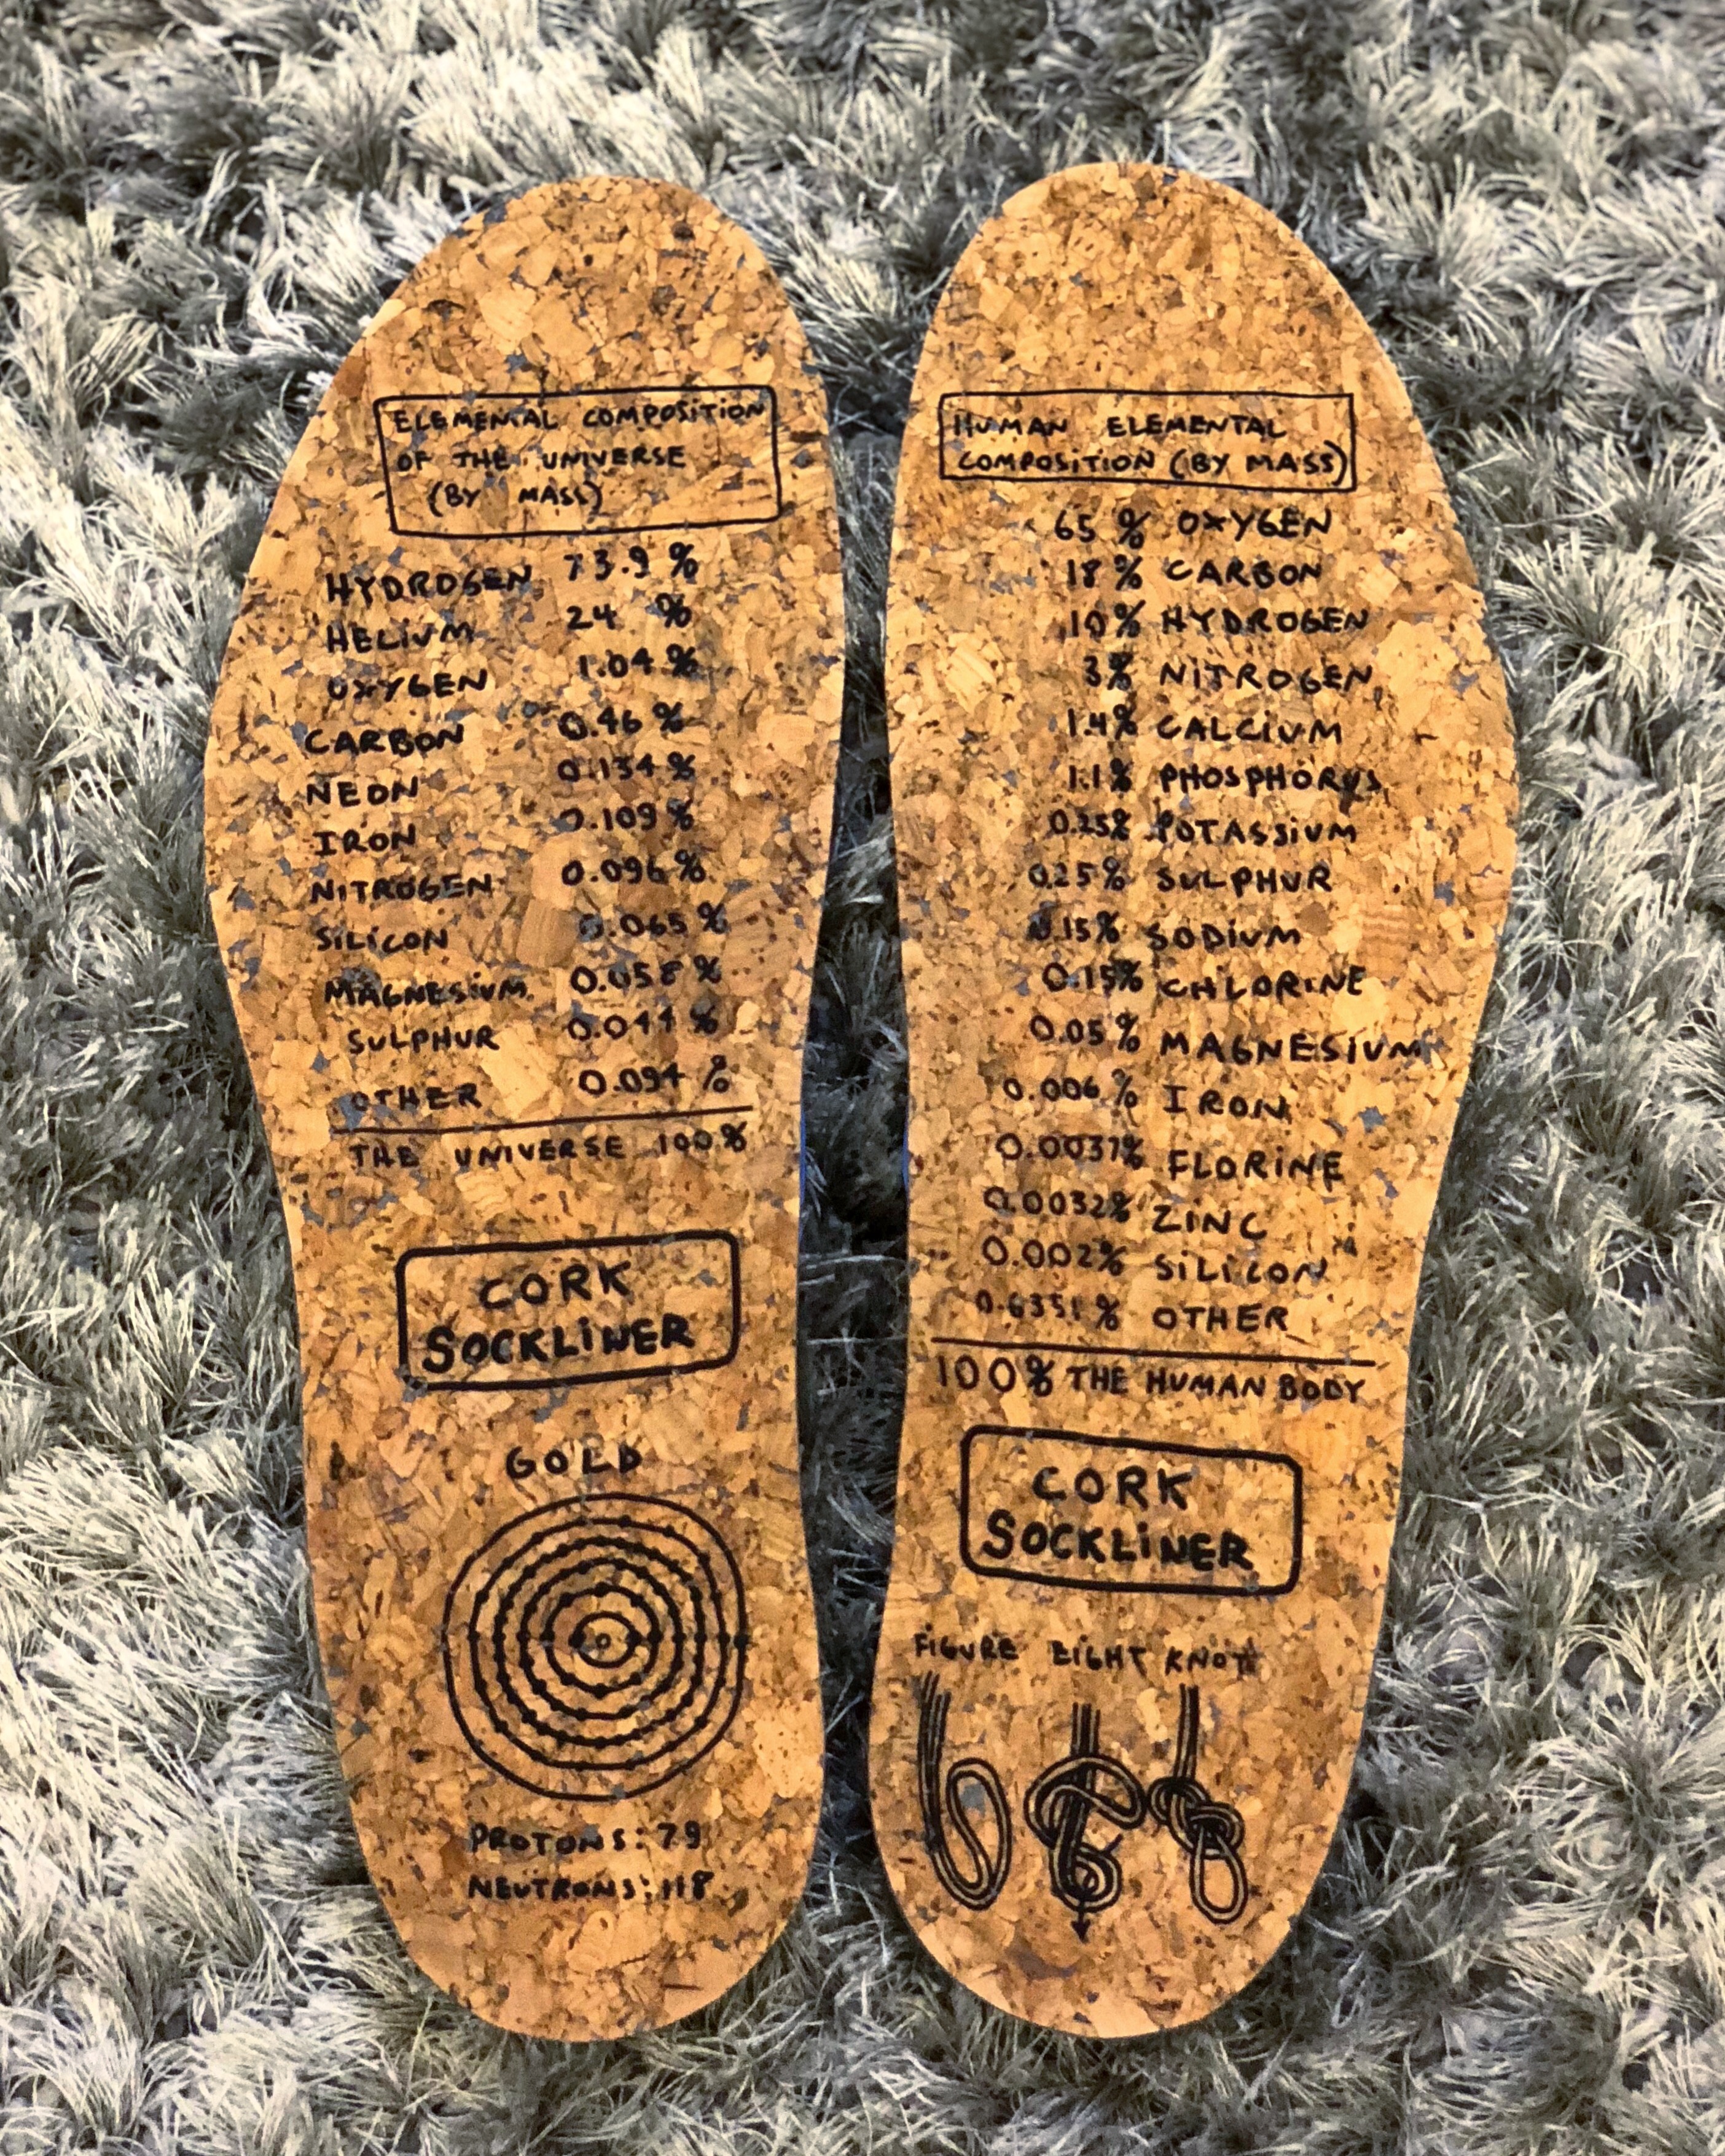 ELEMENTAL COMPOSITION
OF THE UNIVERSE
(BY MASS)
HYDROGEN 73.9 %
HELIUM 24 %
OXYGEN 1.04 %
CARBON 0.46 %
NEON 0.134 %
IRON 0.109 %
NITROGEN 0.096 %
SILICON 0.065 %
MAGNESIUM 0.058 %
SULPHUR 0.044 %
OTHER 0.094 %
THE UNIVERSE 100 %
CORK
SOCKLINER
GOLD
PROTONS: 79
NEUTRONS: 118
HUMAN ELEMENTAL
COMPOSITION (BY MASS)
65 % OXYGEN
18 % CARBON
10 % HYDROGEN
3% NITROGEN
1.4% CALCIUM
1.1% PHOSPHORUS
0.25% POTASSIUM
0.25% SULPHUR
0.15% SODIUM
0.15% CHLORINE
0.05 % MAGNESIUM
0.006 % IRON
0.0037% FLORINE
0.0032% ZINC
0.002% SILICON
0.6351 % OTHER
100% THE HUMAN BODY
CORK
SOCKLINER
FIGURE EIGHT KNOT